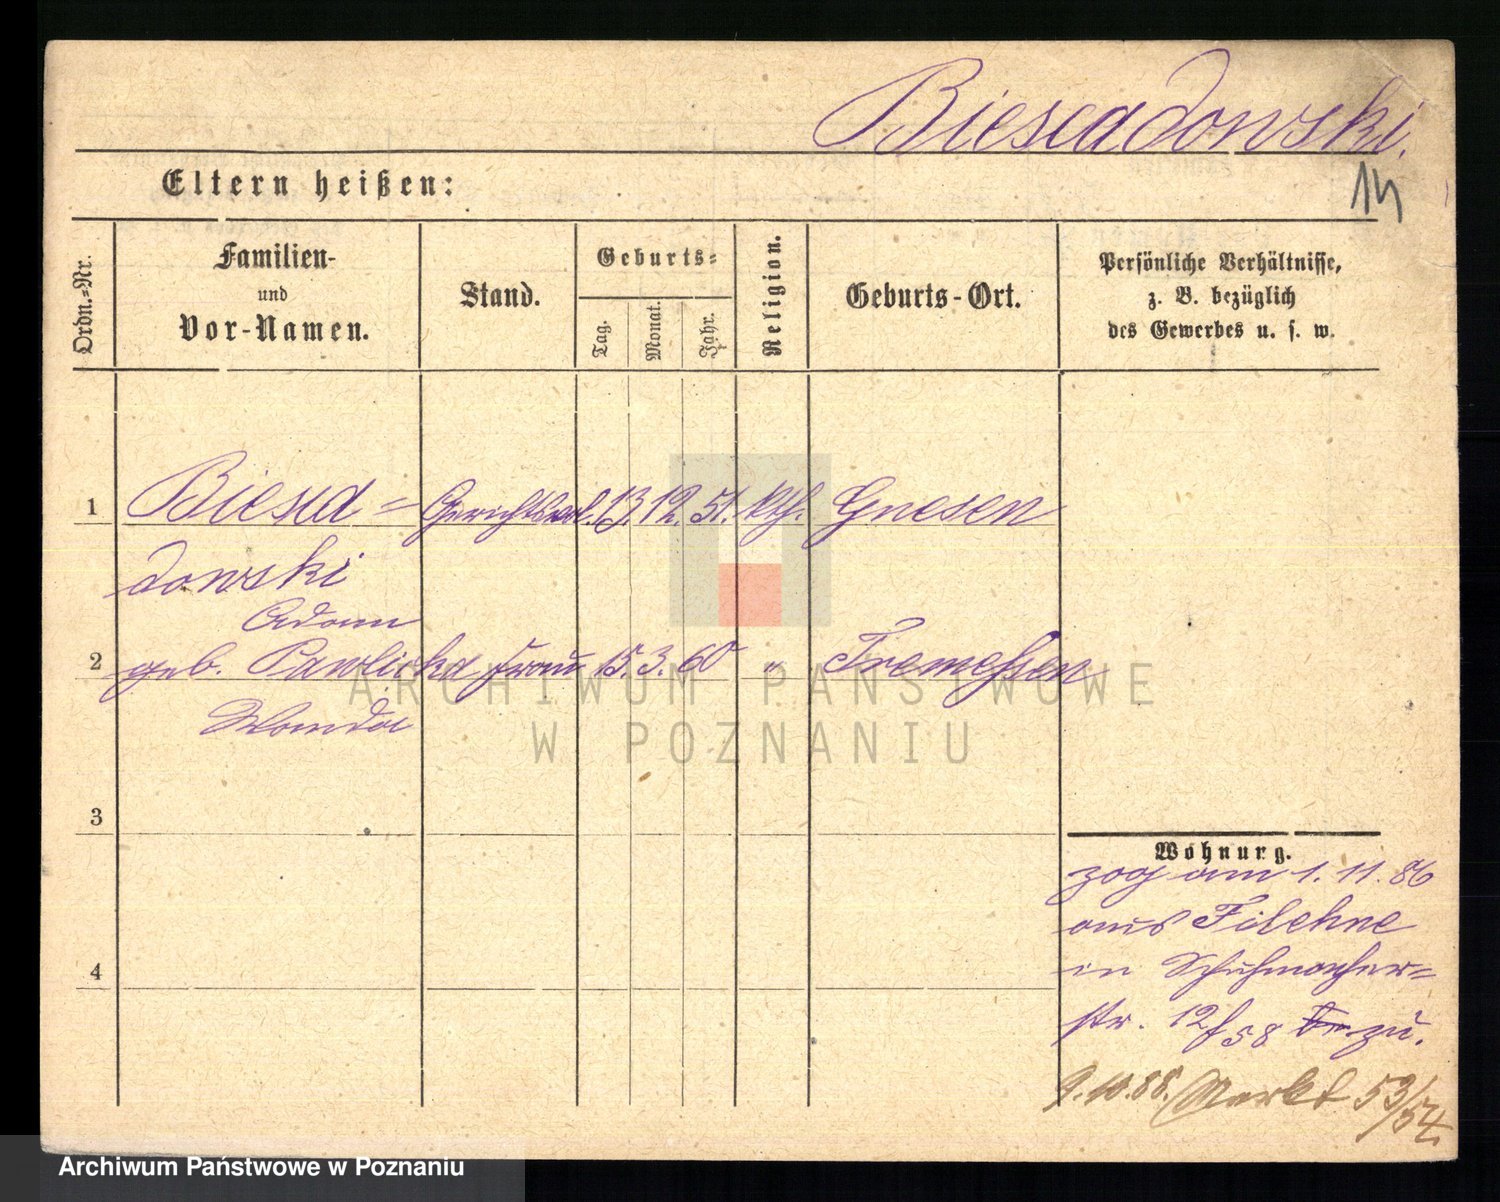 Biesiadowski.
14
Eltern heißen:
Ordn.-Nr.
Familien-
und
Vor-Namen.
Stand.
Geburts-
Tag.
Monat.
Jahr.
Religion.
Geburts-Ort.
Persönliche Verhältnisse,
z. B. bezüglich
des Gewerbes u. s. w.
1 Biesia- 13. 12. 51. kth. Gnesen
dowski
Adam
2 geb. Pawlicka Frau 15. 3. 60 " Tremessen
Wanda
3
Wohnung.
zog am 1. 11. 86
aus Filehne
in Schuhmacher-
str. 12/58 zu.
4
9.10.88. Markt 53/54
ARCHIWUM PAŃSTWOWE
W POZNANIU
Archiwum Państwowe w Poznaniu